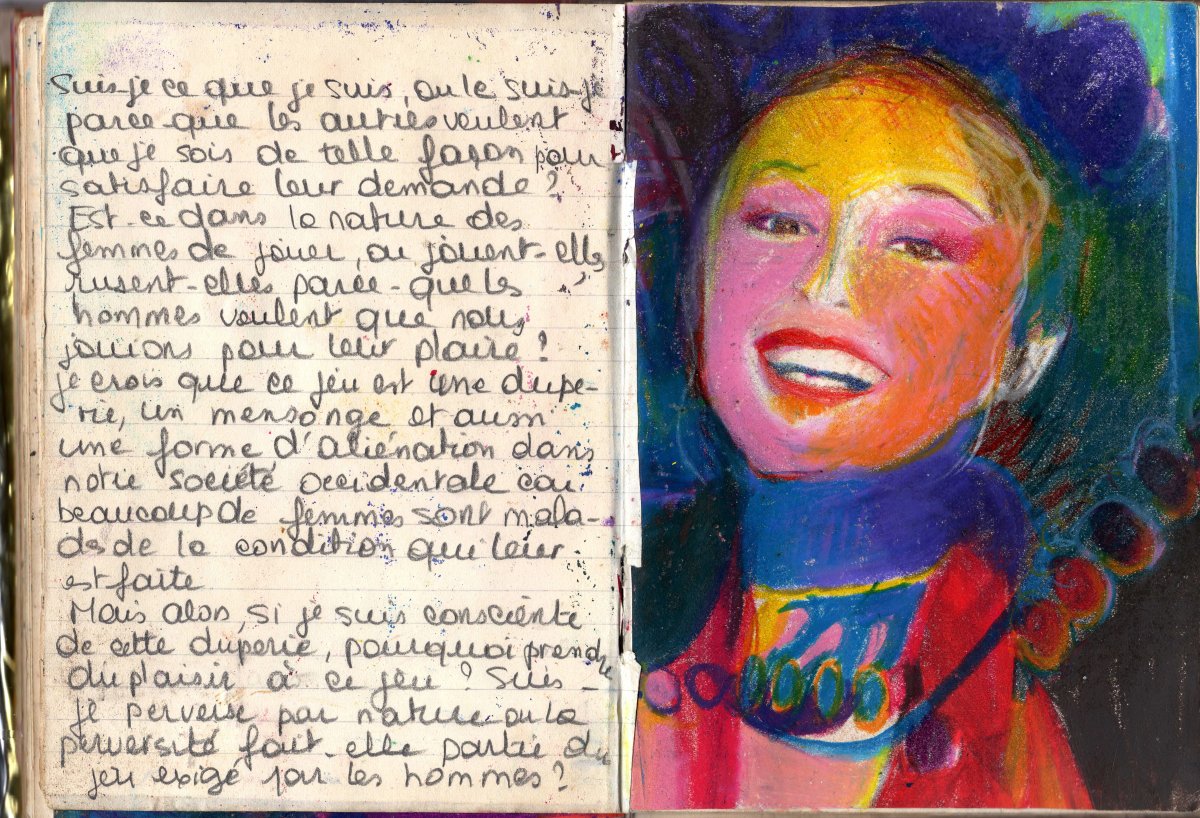 Suis-je ce que je suis, ou le suis-je
parce-que les autres veulent
que je sois de telle façon pour
satisfaire leur demande?
Est-ce dans la nature des
femmes de jouer, ou jouent-elles,
rusent-elles parce-que les
hommes veulent que nous
jouions pour leur plaire?
je crois que ce jeu est une dupe-
rie, un mensonge et aussi
une forme d'aliénation dans
notre société occidentale car
beaucoup de femmes sont mala-
des de la condition qui leur
est faite
Mais alors, si je suis consciente
de cette duperie, pourquoi prendre
du plaisir à ce jeu? Suis-
je perverse par nature ou la
perversité fait-elle partie du
jeu exigé par les hommes?